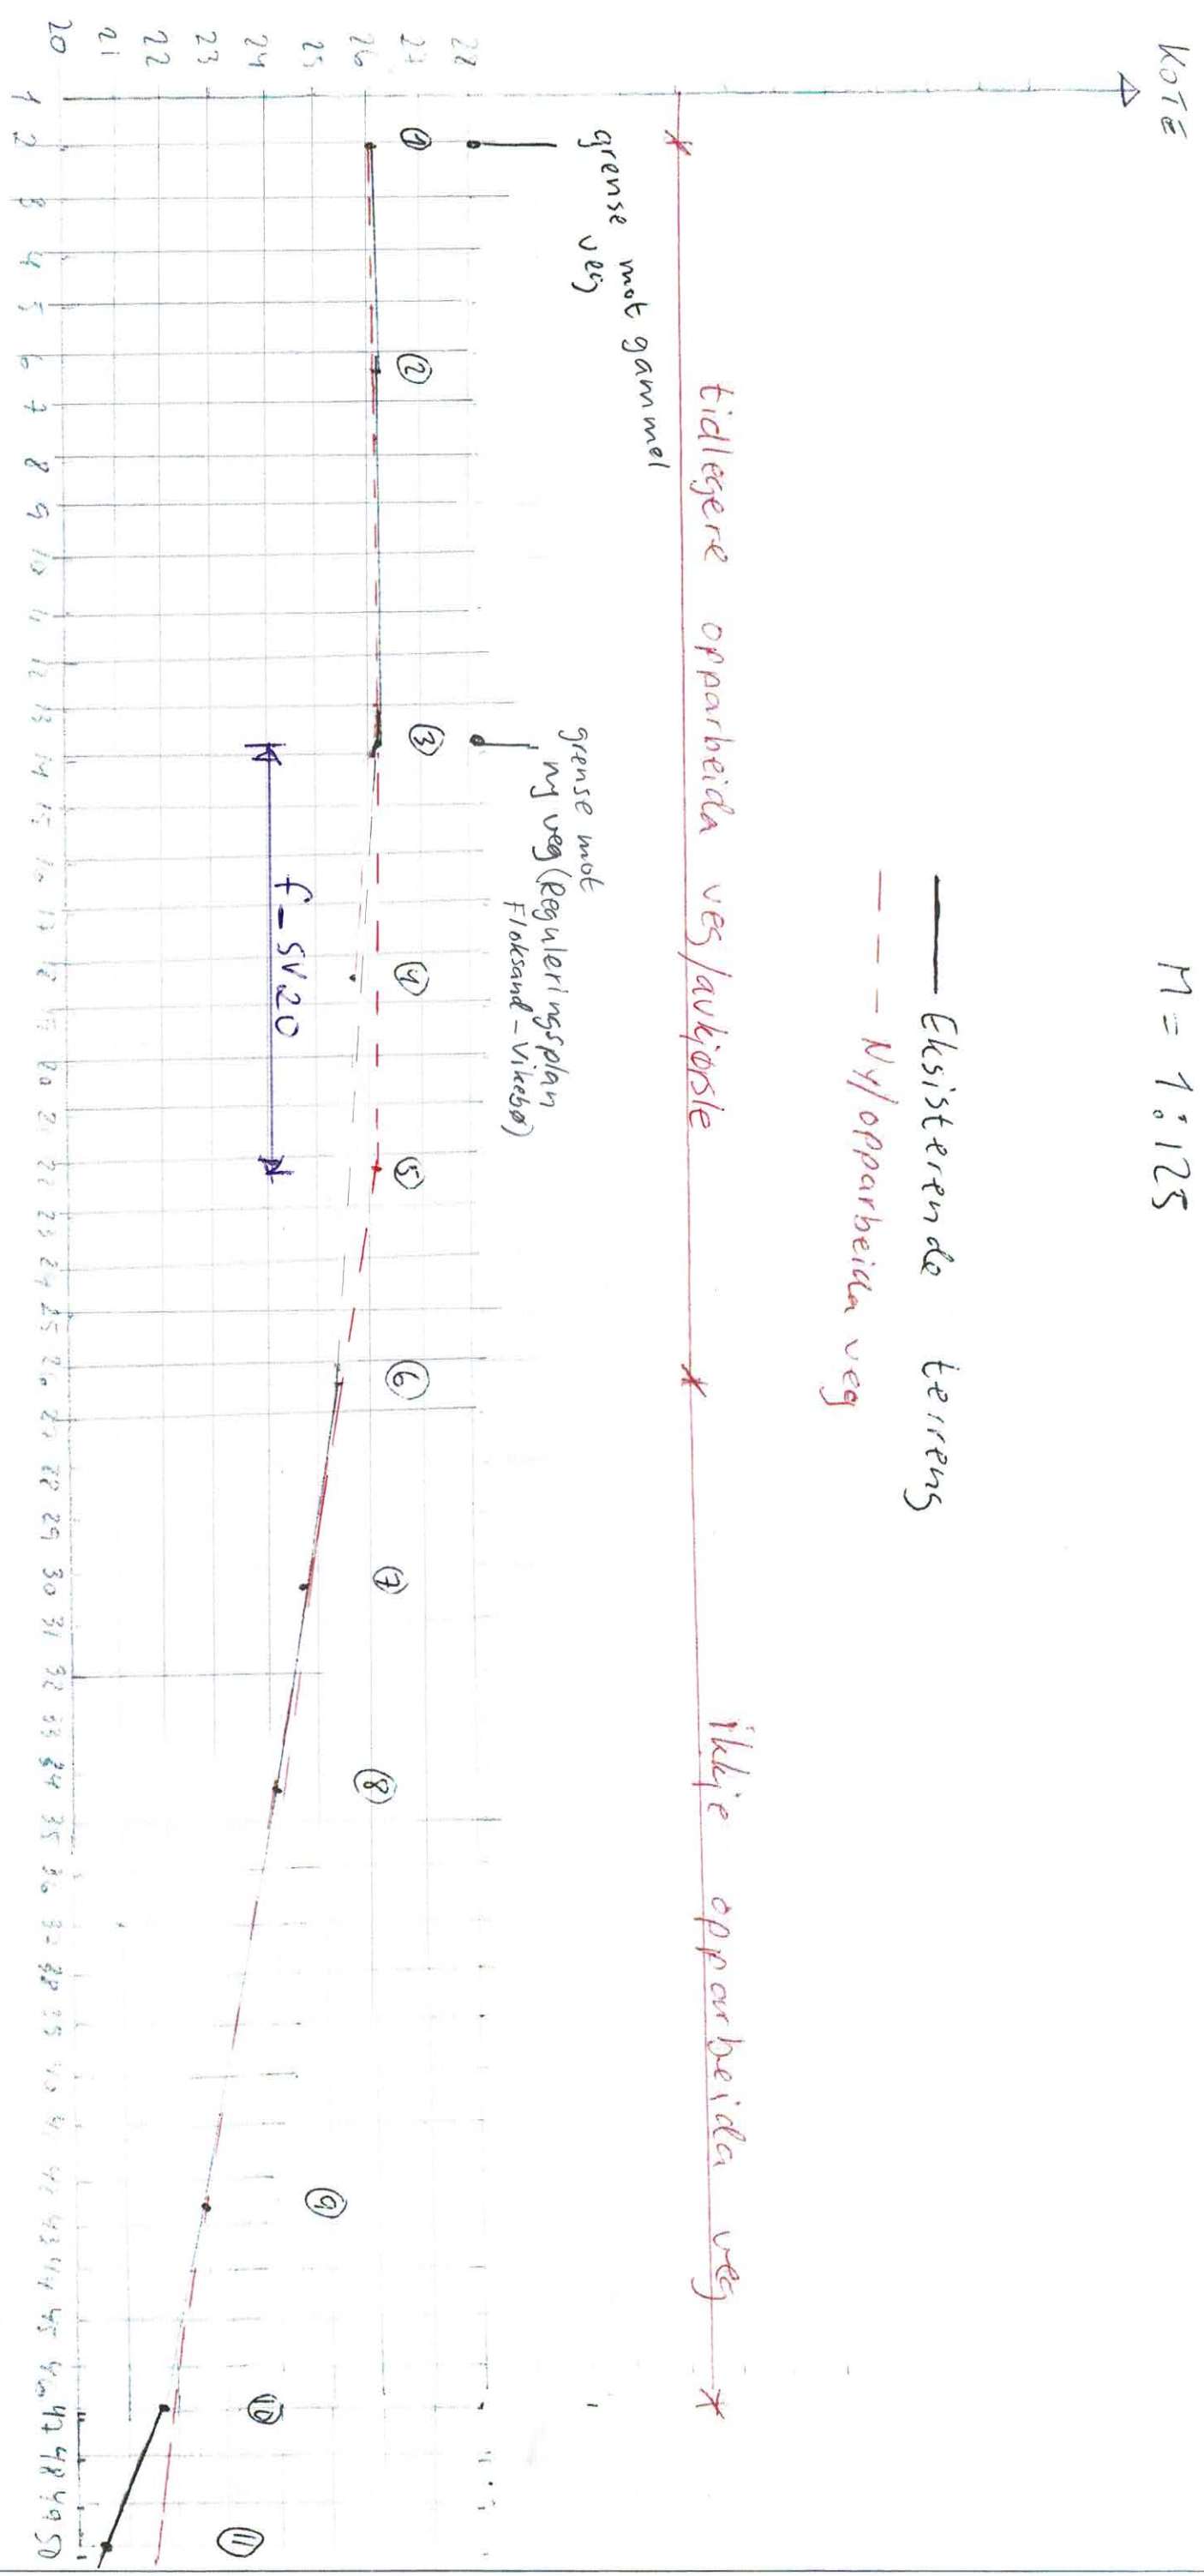 KOTE
M = 1:125
Eksisterende terreng
Ny/opparbeida veg
tidlegere opparbeida veg/avkjørsle
ikkje opparbeida veg
grense mot gammel
veg
grense mot
ny veg (Reguleringsplan
Floksand-Vikebø)
1 2 3 4 5 6 7 8 9 10 11
f_SV20
28
27
26
25
24
23
22
21
20
1 2 3 4 5 6 7 8 9 10 11 12 13 14 15 16 17 18 19 20 21 22 23 24 25 26 27 28 29 30 31 32 33 34 35 36 37 38 39 40 41 42 43 44 45 46 47 48 49 50